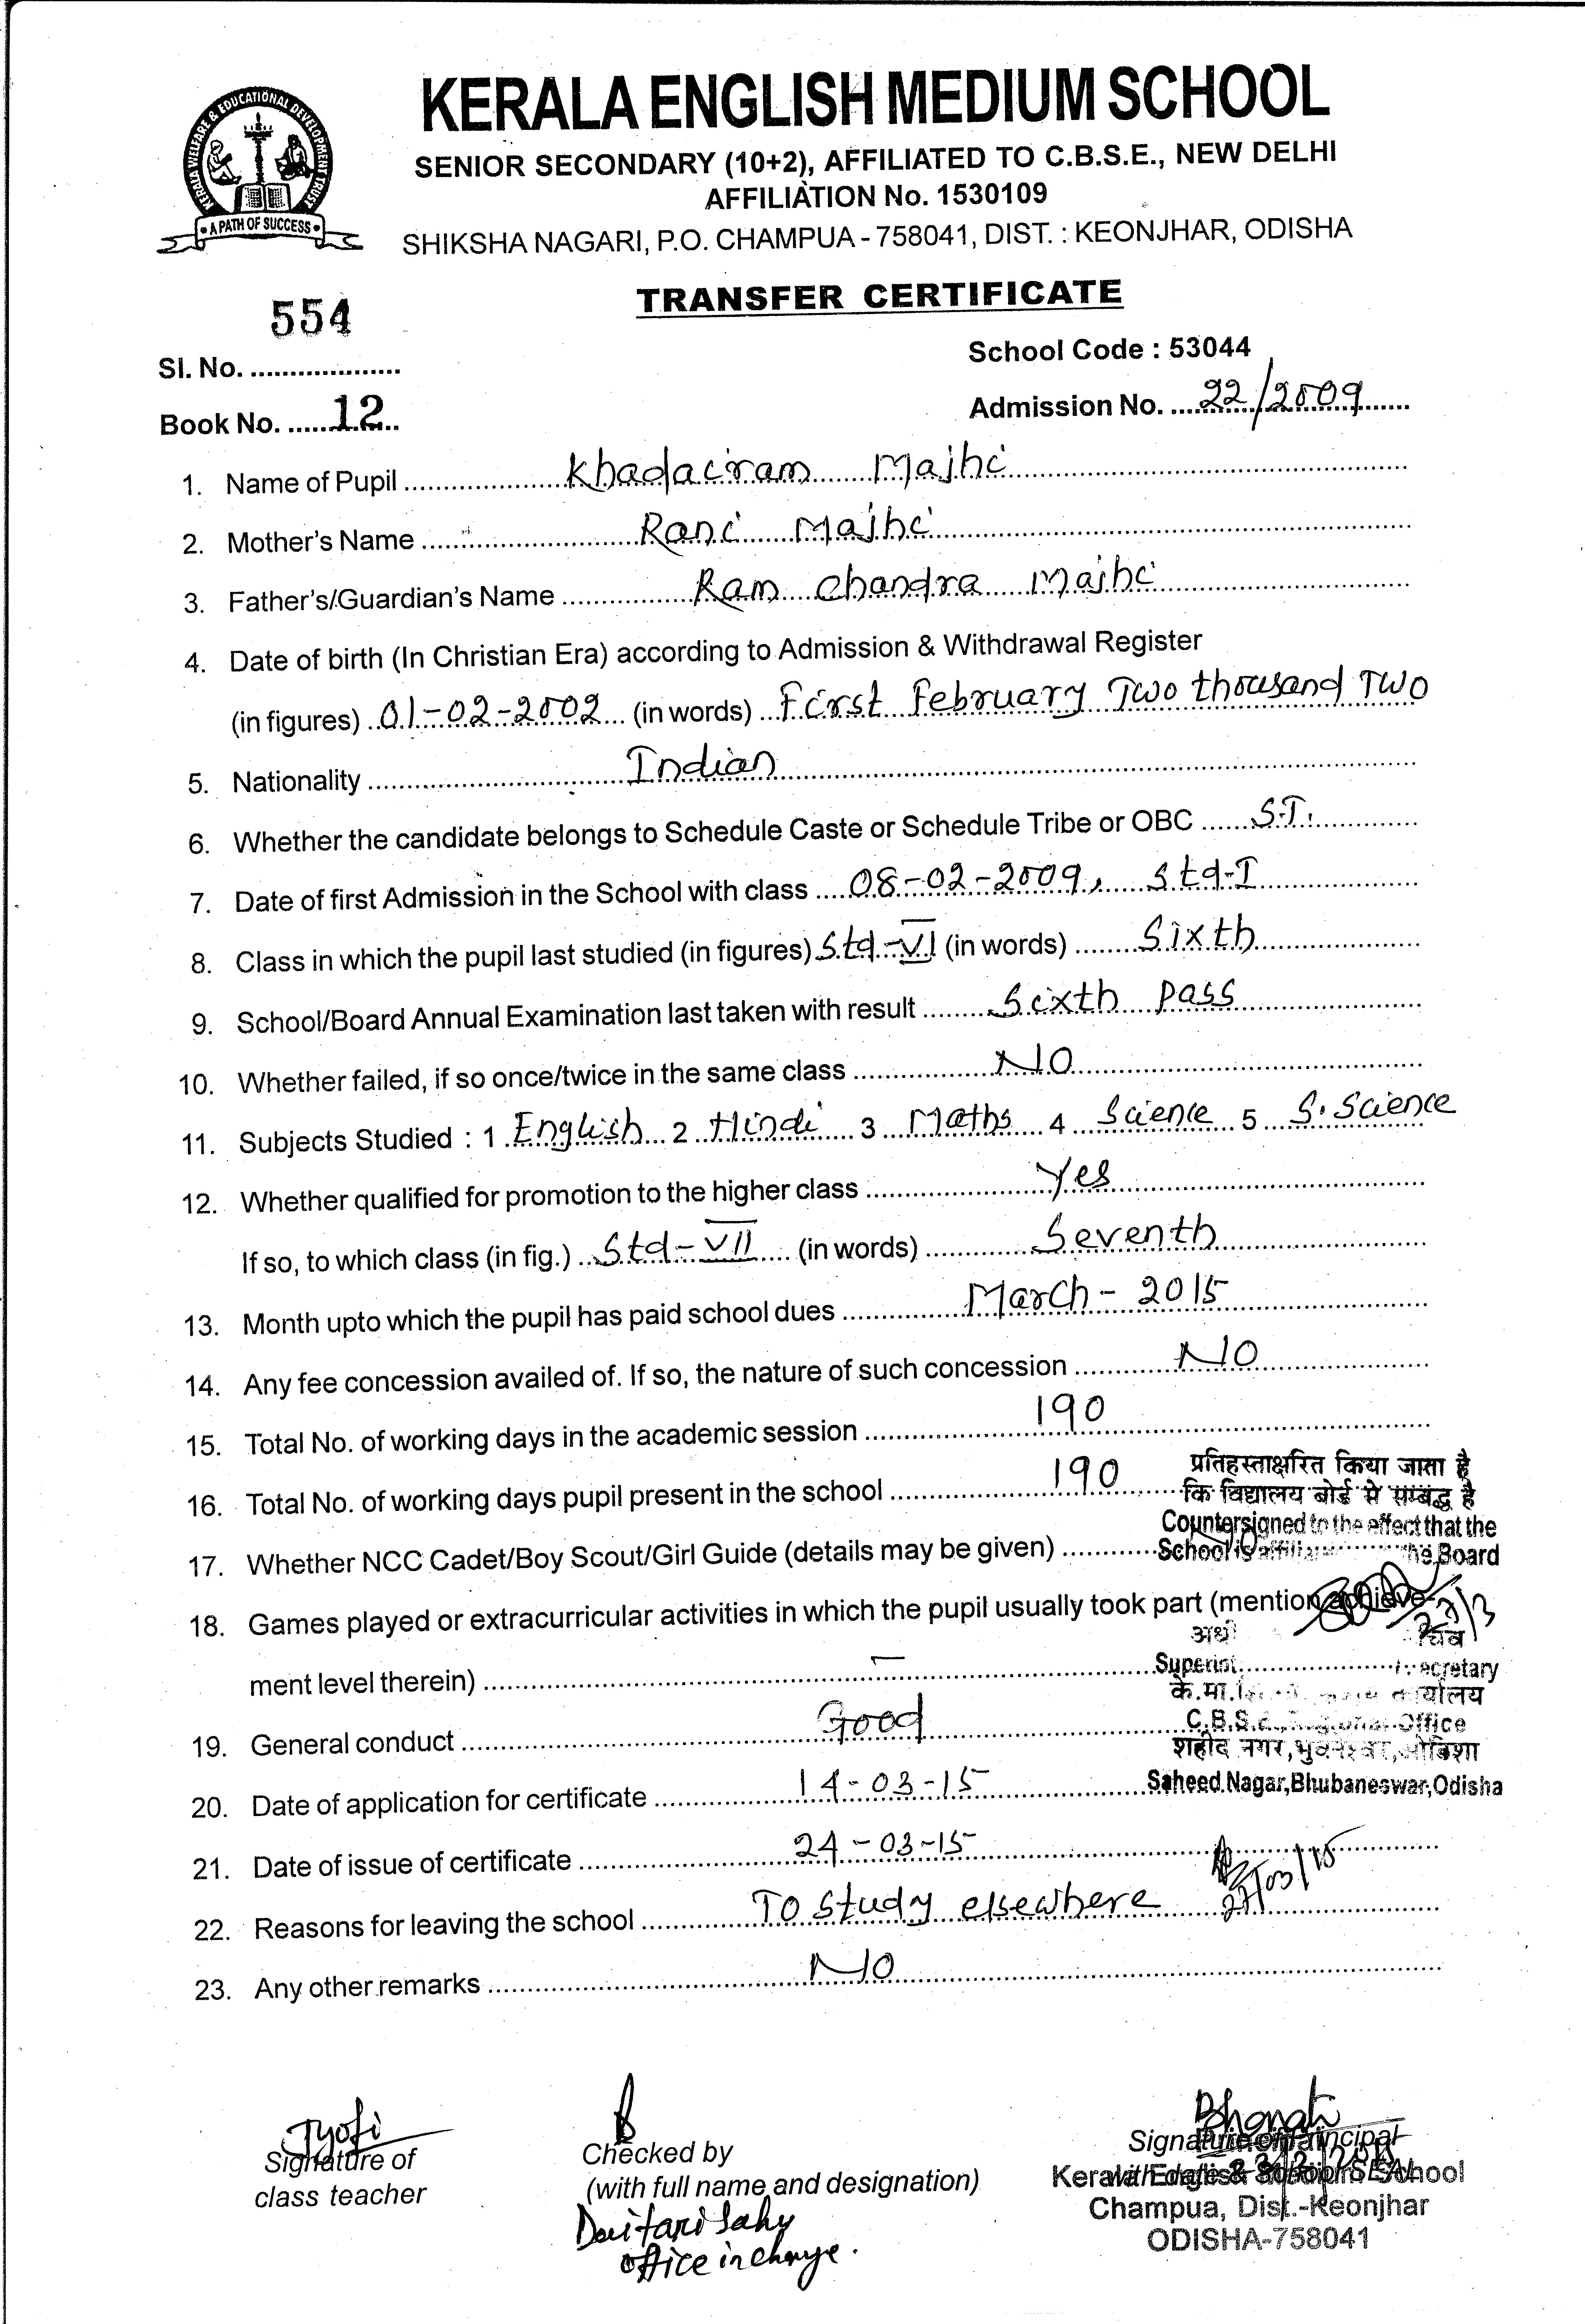 KERALA WELFARE & EDUCATIONAL DEVELOPMENT TRUST
• A PATH OF SUCCESS •
KERALA ENGLISH MEDIUM SCHOOL
SENIOR SECONDARY (10+2), AFFILIATED TO C.B.S.E., NEW DELHI
AFFILIATION No. 1530109
SHIKSHA NAGARI, P.O. CHAMPUA - 758041, DIST. : KEONJHAR, ODISHA
TRANSFER CERTIFICATE
554
Sl. No. ...................
School Code : 53044
Book No. ...... 12 ..
Admission No. .... 22/2009 ......
1. Name of Pupil .................... Khadaciram Majhi
2. Mother's Name .................... Rani Majhi
3. Father's/Guardian's Name .................... Ram Chandra Majhi
4. Date of birth (In Christian Era) according to Admission & Withdrawal Register
(in figures) .. 01-02-2002 ... (in words) .. First February Two thousand Two
5. Nationality .................... Indian
6. Whether the candidate belongs to Schedule Caste or Schedule Tribe or OBC ...... S.T.
7. Date of first Admission in the School with class .... 08-02-2009, Std-I
8. Class in which the pupil last studied (in figures) Std-VI (in words) ........ Sixth
9. School/Board Annual Examination last taken with result ........ Sixth Pass
10. Whether failed, if so once/twice in the same class .................... NO
11. Subjects Studied : 1 English 2 Hindi 3 Maths 4 Science 5 S. Science
12. Whether qualified for promotion to the higher class .................... Yes
If so, to which class (in fig.) .. Std-VII .... (in words) ............ Seventh
13. Month upto which the pupil has paid school dues ............ March - 2015
14. Any fee concession availed of. If so, the nature of such concession ............ NO
15. Total No. of working days in the academic session .................... 190
16. Total No. of working days pupil present in the school .................... 190
प्रतिहस्ताक्षरित किया जाता है
कि विद्यालय बोर्ड से सम्बद्ध है
Countersigned to the effect that the
17. Whether NCC Cadet/Boy Scout/Girl Guide (details may be given) ............
School is the Board
18. Games played or extracurricular activities in which the pupil usually took part (mention achieve-
ment level therein) .................... –
Secretary
19. General conduct .................... Good
C.B.S.E., Regional Office
शहीद नगर, भुवनेश्वर, ओडिशा
Saheed Nagar, Bhubaneswar, Odisha
20. Date of application for certificate .................... 14-03-15
21. Date of issue of certificate .................... 24-03-15
27/03/15
22. Reasons for leaving the school ............ To study elsewhere
23. Any other remarks .................... NO
Jyoti
Signature of
class teacher
Checked by
(with full name and designation)
Daitari Sahu
office in charge.
Signature of Principal
Kerala English Medium School
Champua, Dist.-Keonjhar
ODISHA-758041